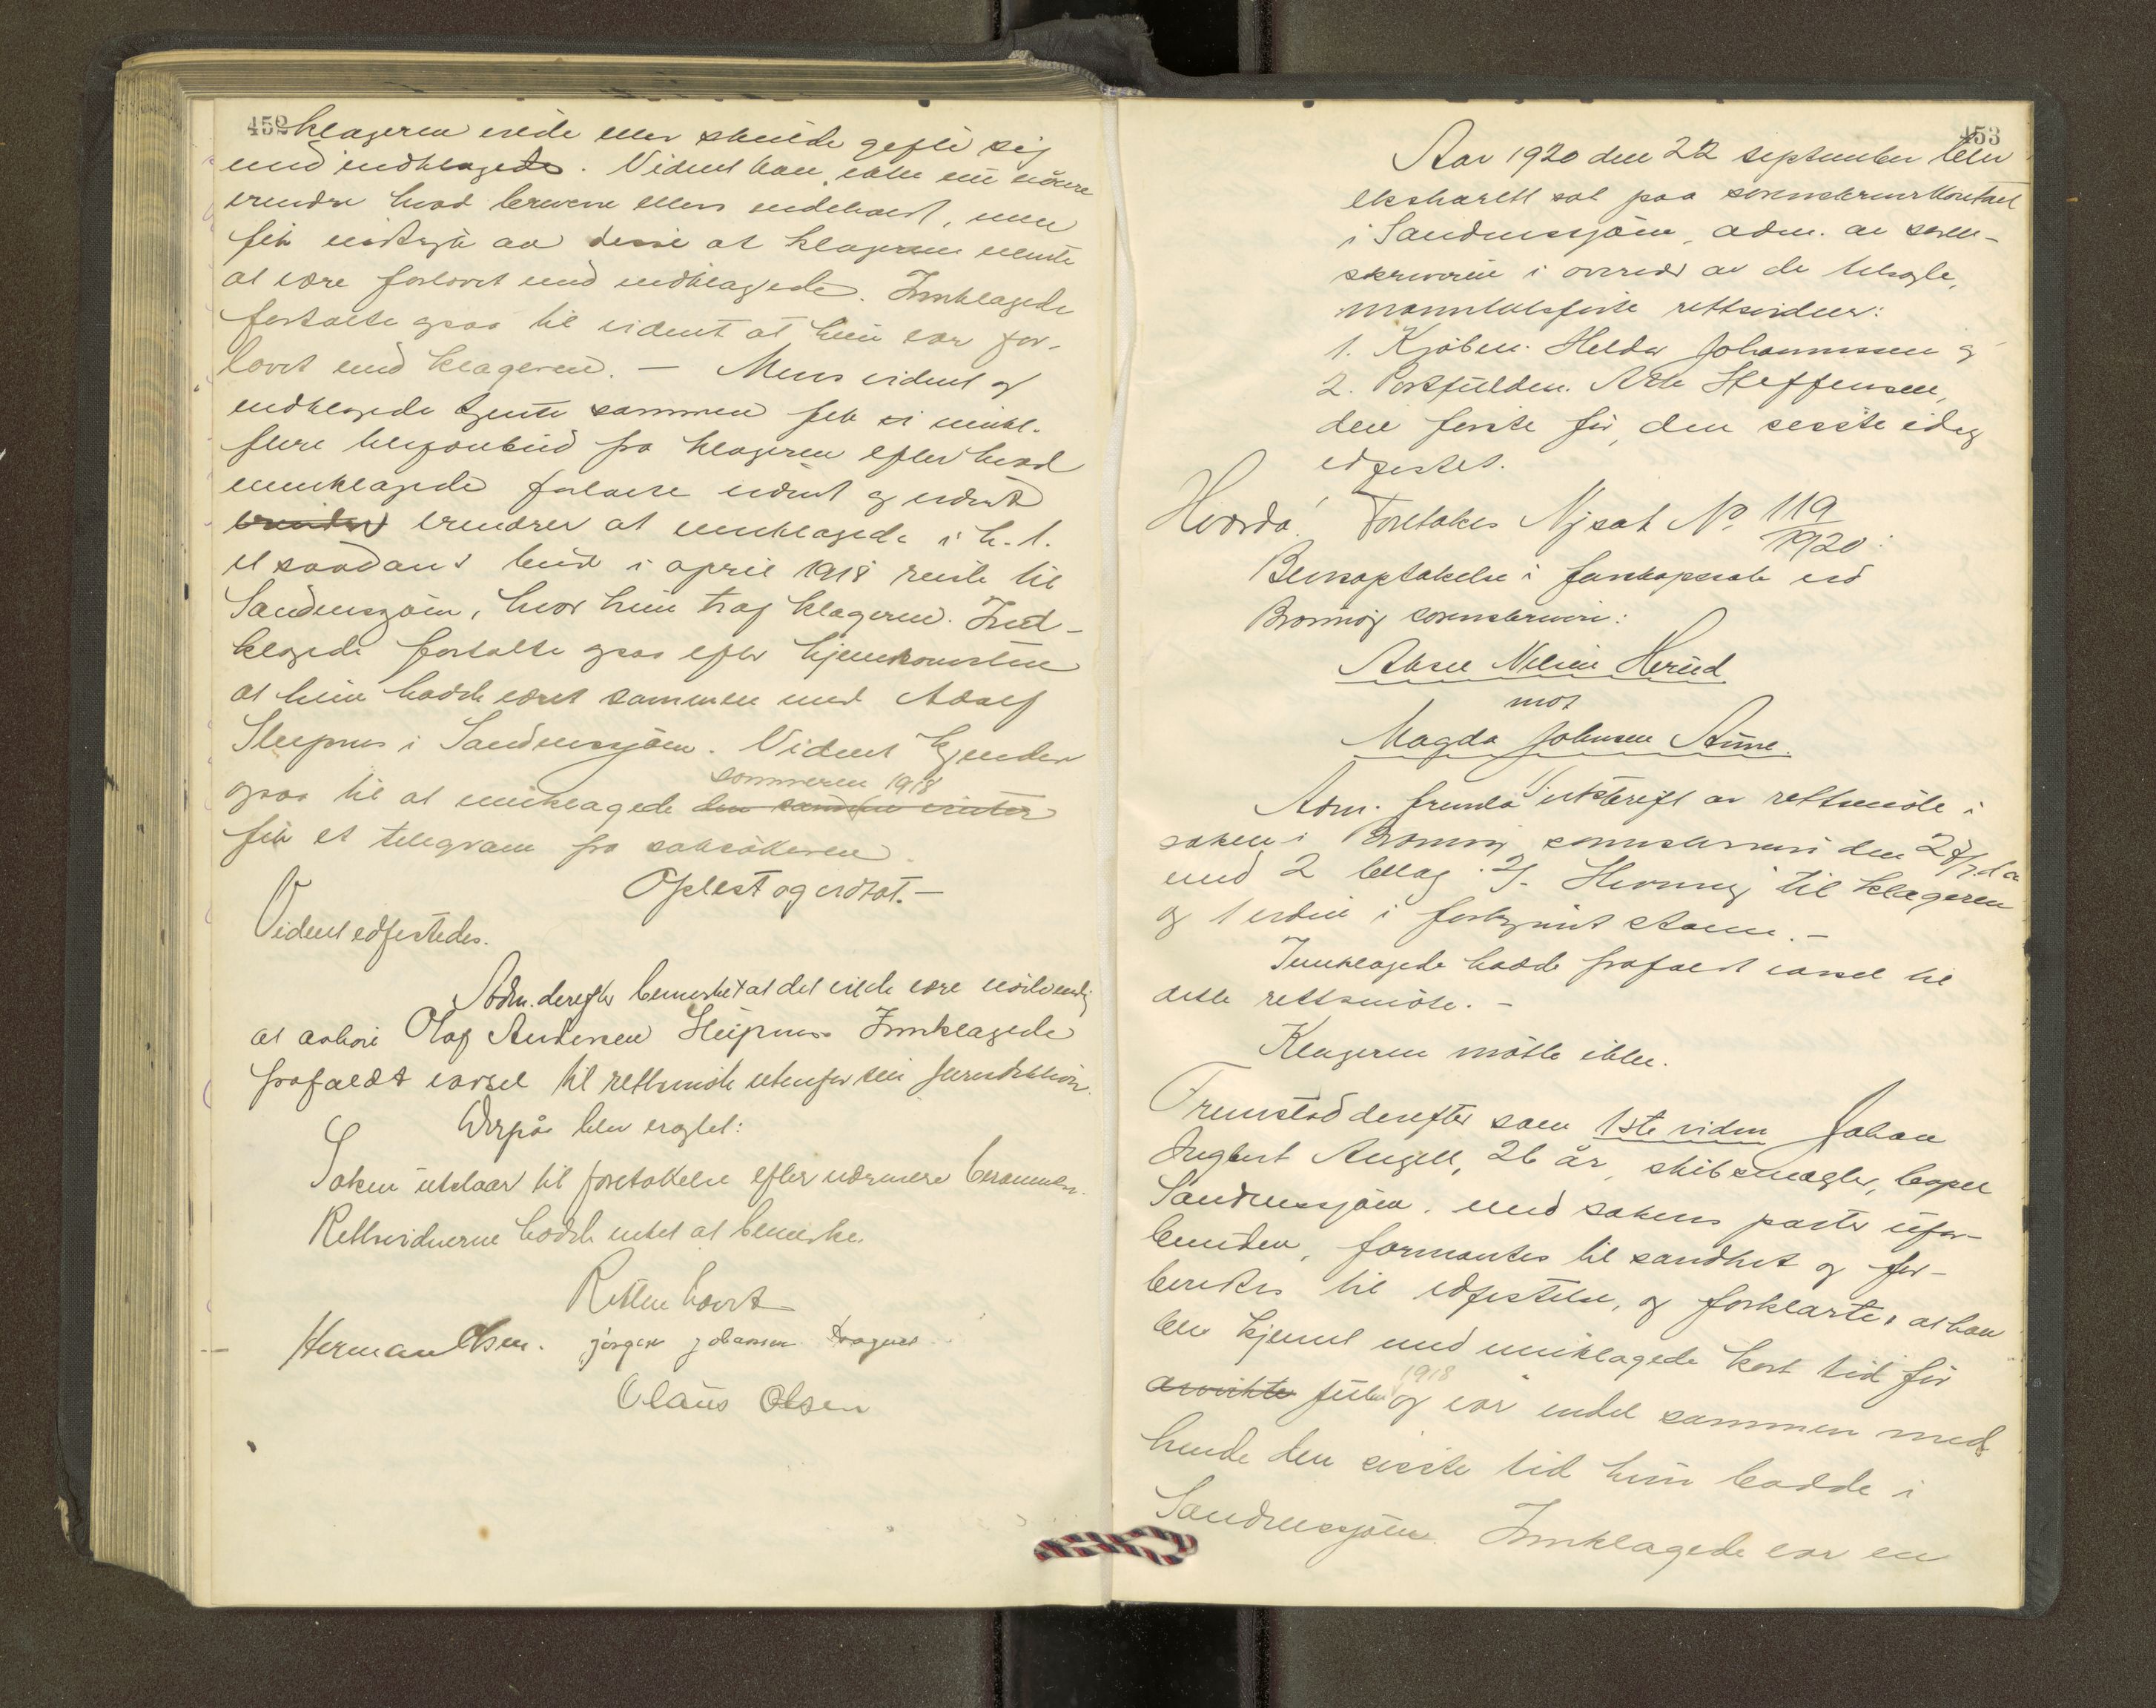 452
klageren vilde eller skulde gifte sig
med indklagede. Vidnet kan ikke nu nöiere
erindre hvad brevene ellers indeholdt, men
fik indtryk av disse at klageren mente
at være forlovet med indklagede. Innklagede
fortalte ogsaa til vidnet at hun var for-
lovet med klageren. — Mens vidnet og
indklagede tjente sammen fik si innkl.
flere telefonbud fra klageren efter hvad
innklagede fortalte vidnet og vidnet
erindrer erindrer at innklagede i h. t.
et saadant bud i april 1918 reiste til
Sandnessjöen, hvor hun traf klageren. Ind-
klagede fortalte ogsaa efter hjemkomsten
at hun hadde været sammen med Adolf
Sleipnes i Sandnessjöen. Vidnet kjender
sommeren 1918
ogsaa til at innklagede den samme vinter
fik et telegram fra saksökeren.
Oplest og vedtat. —
Vidnet edfestedes.
Adm. derefter bemerket at det vilde være nödvendig
at avhöre Olaf Andersen Sleipnes. Innklagede
frafaldt varsel til rettsmöte utenfor sin jurisdiktion.
Derpaa blev avgtet:
Saken utstaar til foretakelse efter nærmere berammelse.
Rettsvidnerne hadde intet at bemerke.
Retten hævet
Herman Olsen. jörgen johansen
Olaus Olsen
453
Aar 1920 den 22 september blev
ekstrarett sat paa sorenskriverkontoret
i Sandnessjöen, adm. av soren-
skriveren i overvær av de tilsagte,
manntalsförte rettsvidner:
1. Kjöbm. Heldor Johannessen og
2. Postfuldm. Arle Steffensen,
den förste för, den sisste idag
edfestet.
Hvorda! Foretokes Njsak No 119/1920:
Bevisoptakelse i farskapssak ved
Brönnöy sorenskriveri:
Aksel Nilsen Herud
mot
Magda Johnsen Aune.
Adm. fremla 1/ utskrift av rettsmöte i
saken i Brönnöy sorenskriveri den 27/7 d. a.
med 2 bilag. 2/. Stevning til klageren
og 1 vidne i forkynt stand. —
Innklagede hadde frafaldt varsel til
dette rettsmöte. —
Klageren mötte ikke.
Fremstod derefter som 1ste vidne Johan
Ingbert Angell, 26 år, skibsmægler, bopæl
Sandnessjöen, med sakens parter ufor-
bunden, formantes til sandhet og for-
beredtes til edfestelse, og forklarte, at han
blev kjennt med innklagede kort tid för
1918
julen og var endel sammen med
hende den sisste tid hun bodde i
Sandnessjöen. Innklagede var en